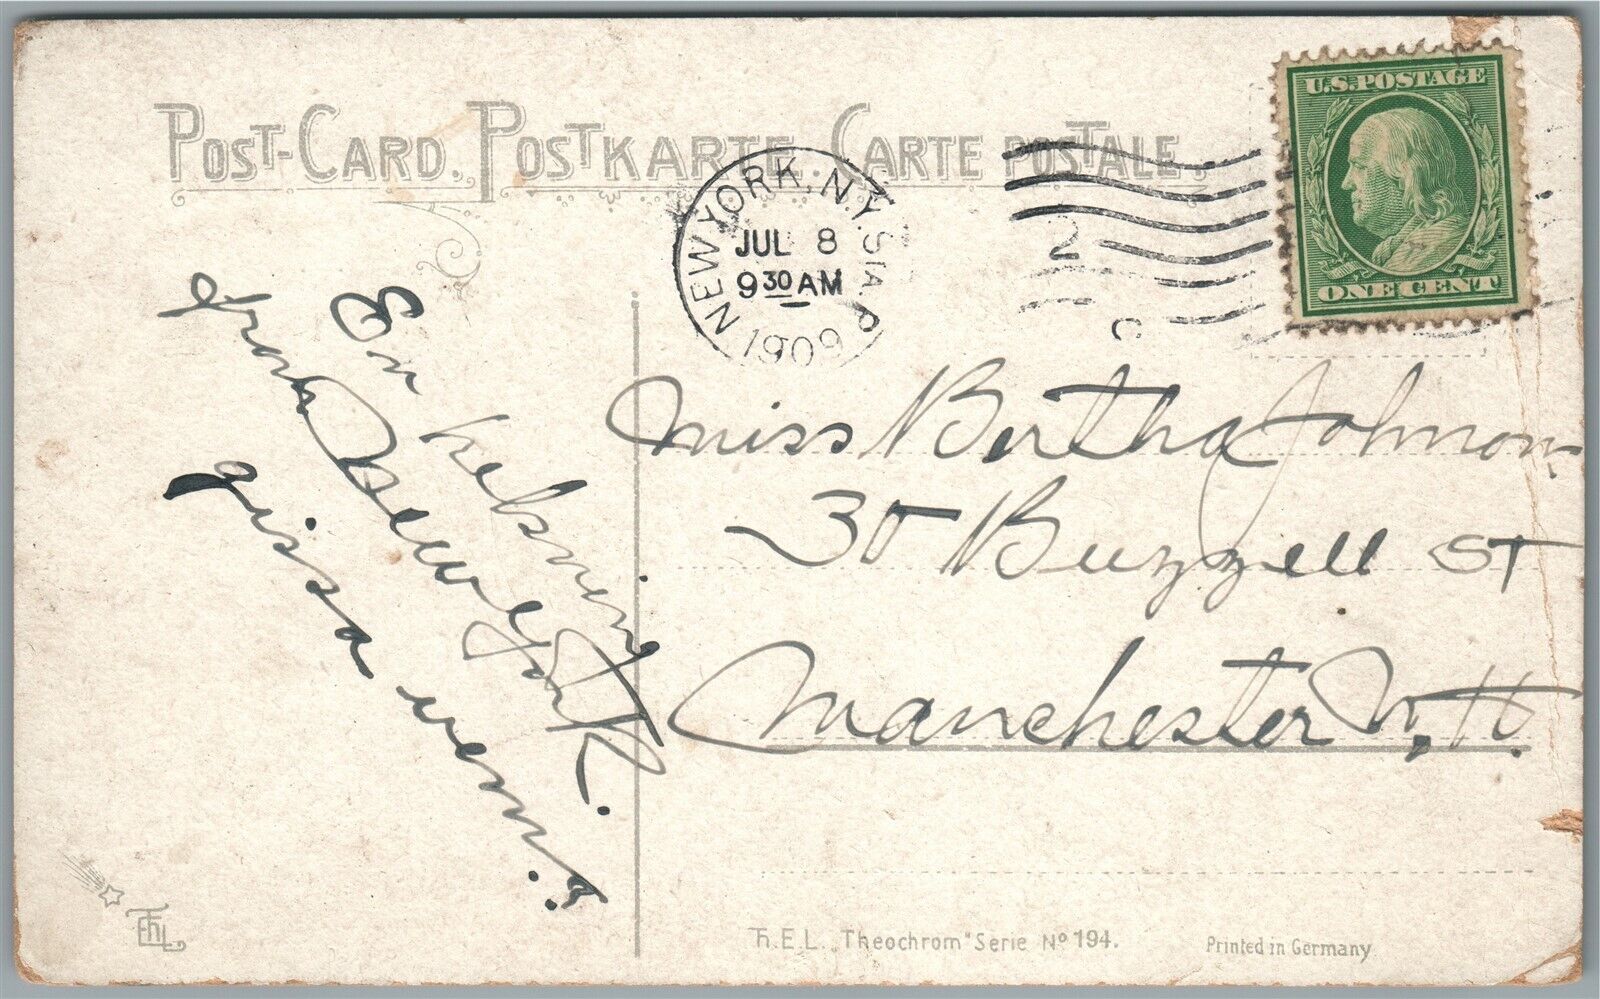 POST-CARD. POSTKARTE. CARTE POSTALE.
U.S. POSTAGE
ONE CENT
NEW YORK, N.Y. STA. P
JUL 8
9 30 AM
1909
2
C
En helsning
från New York.
gissa vem?
Miss Bertha Johnson
30 Buzzell St
Manchester N.H.
Th.E.L. „Theochrom" Serie No 194.
Printed in Germany